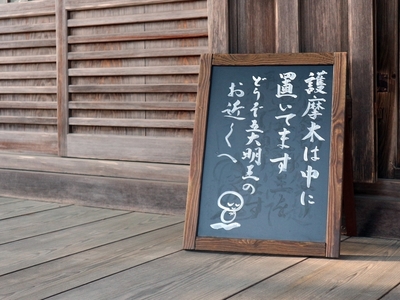 護摩木は中に
置いてます
どうぞ五大明王の
お近くへ